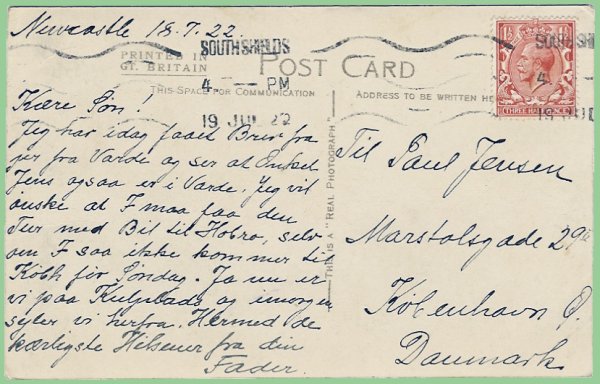 Newcastle 18.7.22
SOUTH SHIELDS
4 — PM
19 JUL 22
SOUTH SHI
4
19 JUL
THREE HALF PENCE
PRINTED IN
GT. BRITAIN
POST CARD
THIS SPACE FOR COMMUNICATION
ADDRESS TO BE WRITTEN HE
THIS IS A "REAL PHOTOGRAPH"
Kære Søn!
Jeg har idag faaet Brev fra
jer fra Varde og ser at Onkel
Jens ogsaa er i Varde. Jeg vil
ønske at I maa faa den
Tur med Bil til Hobro, selv
om I saa ikke kommer til
Kbhk før Søndag. Ja nu er
vi paa Kulplads og imorgen
sejler vi herfra. Hermed de
kærligste Hilsener fra din
Fader.
Til Paul Jensen
Marstalsgade 29
København Ø.
Danmark